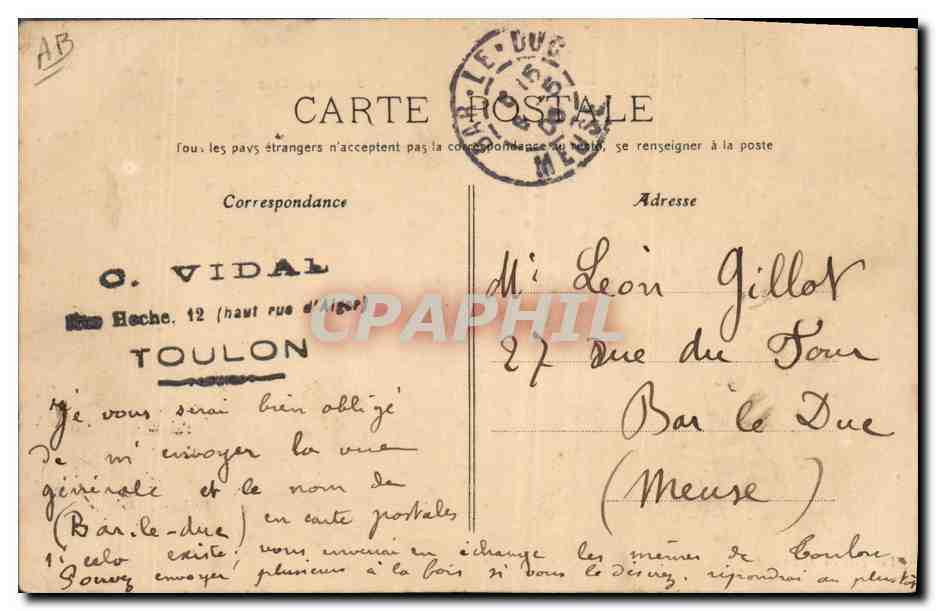 AB
CARTE POSTALE
BAR-LE-DUC
MEUSE
Tous les pays étrangers n'acceptent pas la correspondance au recto, se renseigner à la poste
Correspondance
Adresse
C. VIDAL
Rue Hoche, 12 (haut rue d'Alger)
TOULON
CPAPHIL
Mr Léon Gillot
27 rue du Four
Bar le Duc
(Meuse)
Je vous serai bien obligé
de m'envoyer la vue
générale et le nom de
(Bar-le-duc) en carte postales
si cela existe; vous enverrai en échange les mêmes de Toulon.
Pouvez envoyer plusieurs à la fois si vous le désirez, répondrai au plus tôt